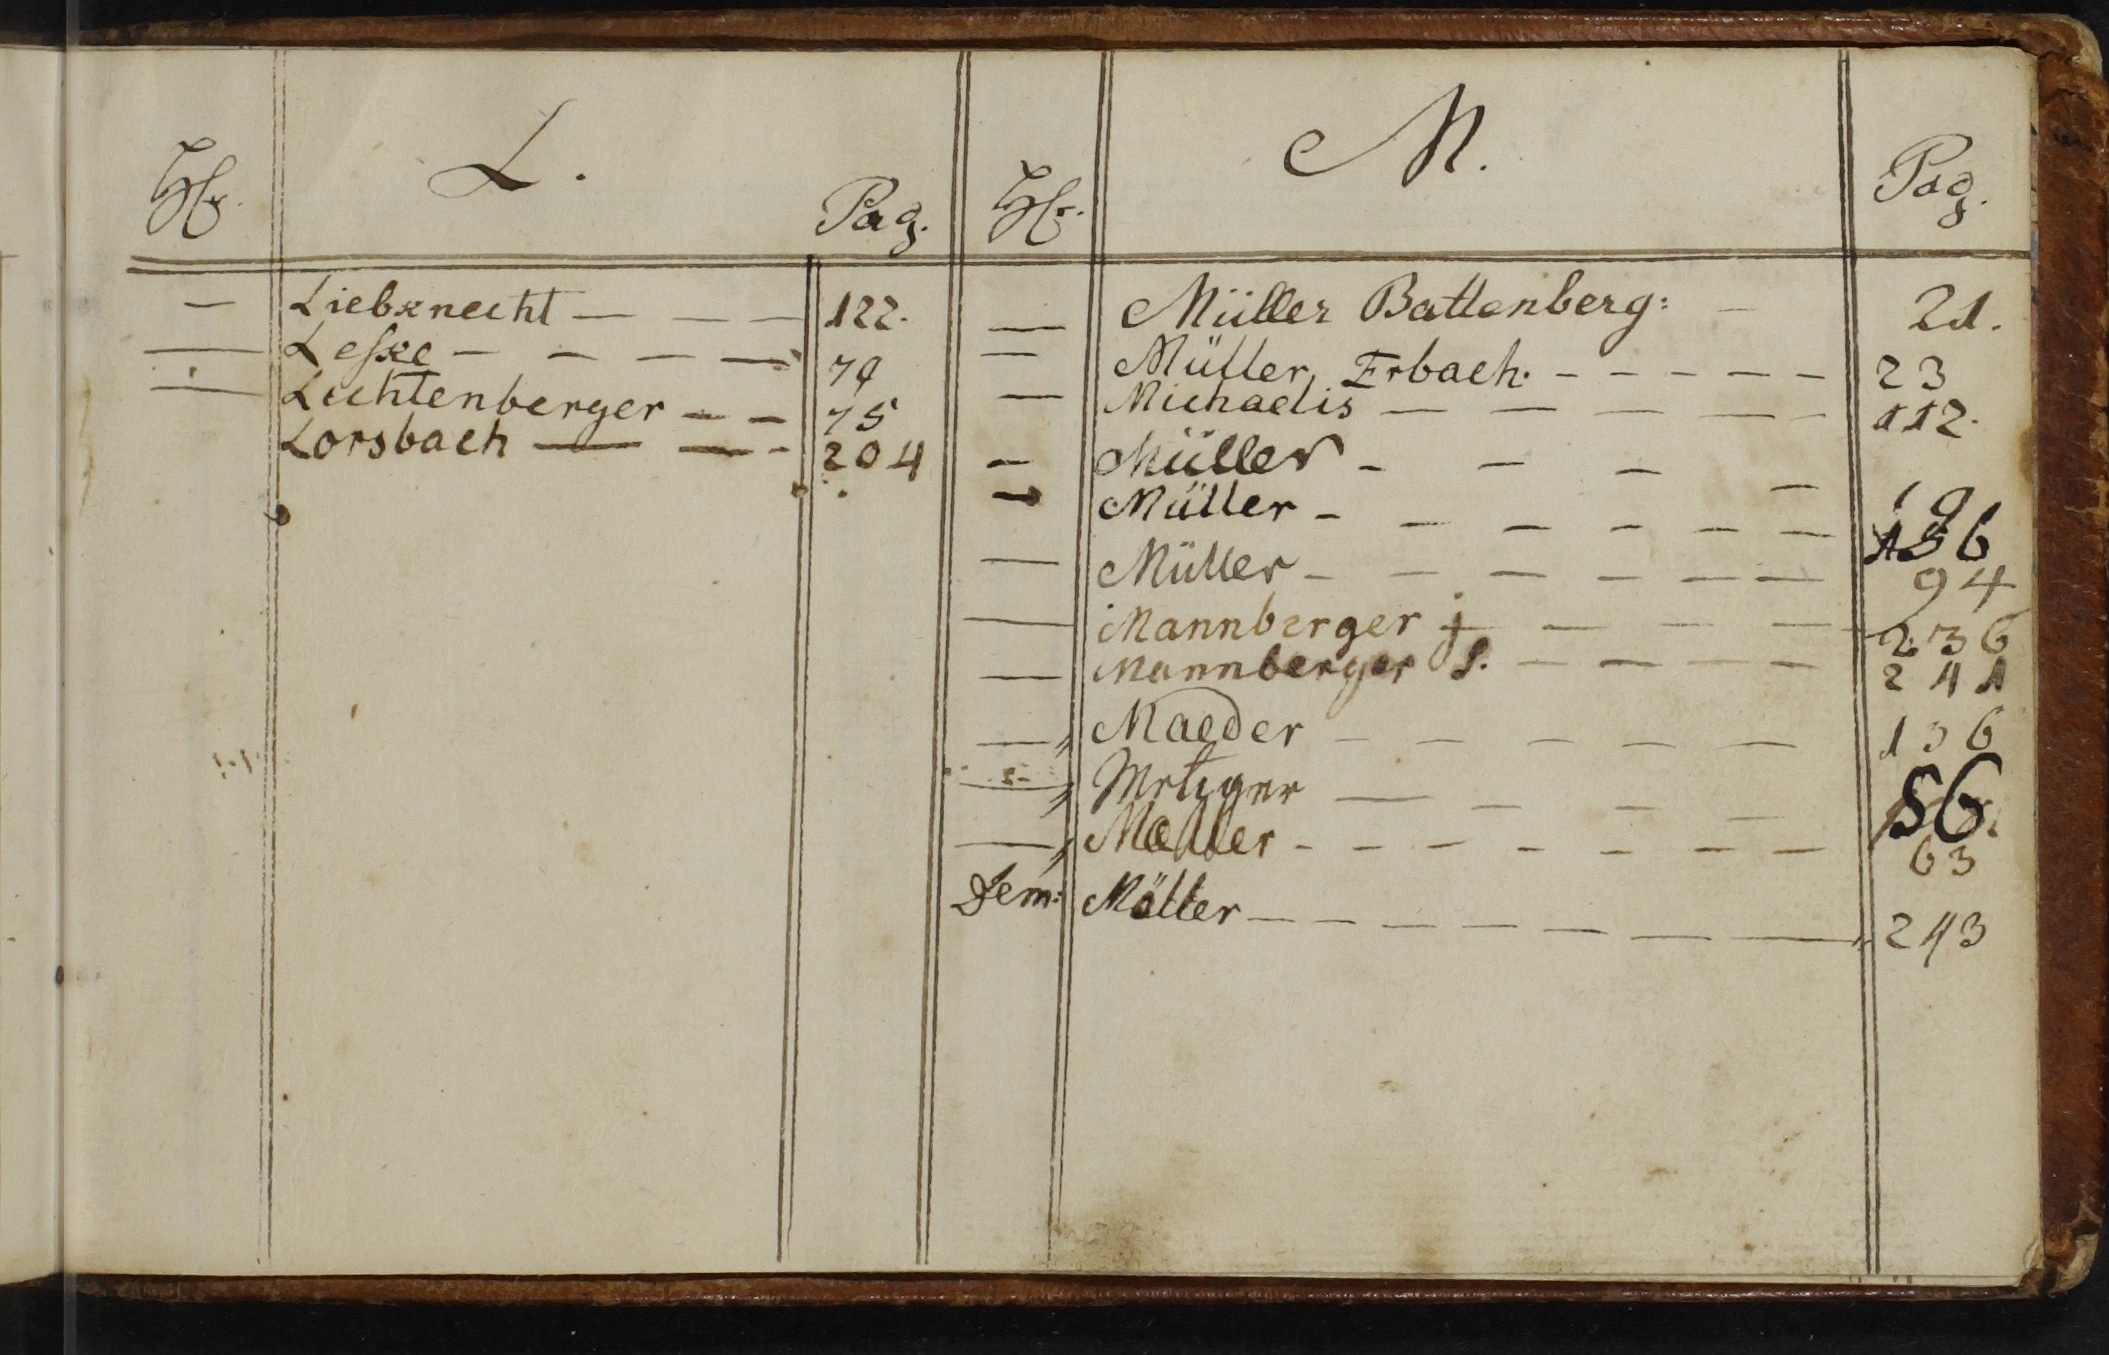 Hr. L. Pag.
— Liebknecht — — — 122.
— Leske — — — — 74
— Lichtenberger — — 75
Lorsbach — — - 204
Hr. M. Pag.
— Müller Battenberg: — 21.
— Müller, Erbach. - - - - - 23
— Michaelis — — — — — 112.
— Müller - — — — 19
— Müller - — — — — — 136
— Müller - — — — — — 94
— Mannberger j — — — — 236
— Mannberger S. — — — — 241
— Maeder — — — — — 136
— Metzger — — — — 86
— Mœller - - - - - — — 63
Dem: Möller — — — — — — — 243